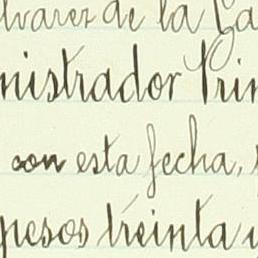 lvarez de la Ca
nistrador Prin
con esta fecha,
pesos treinta y